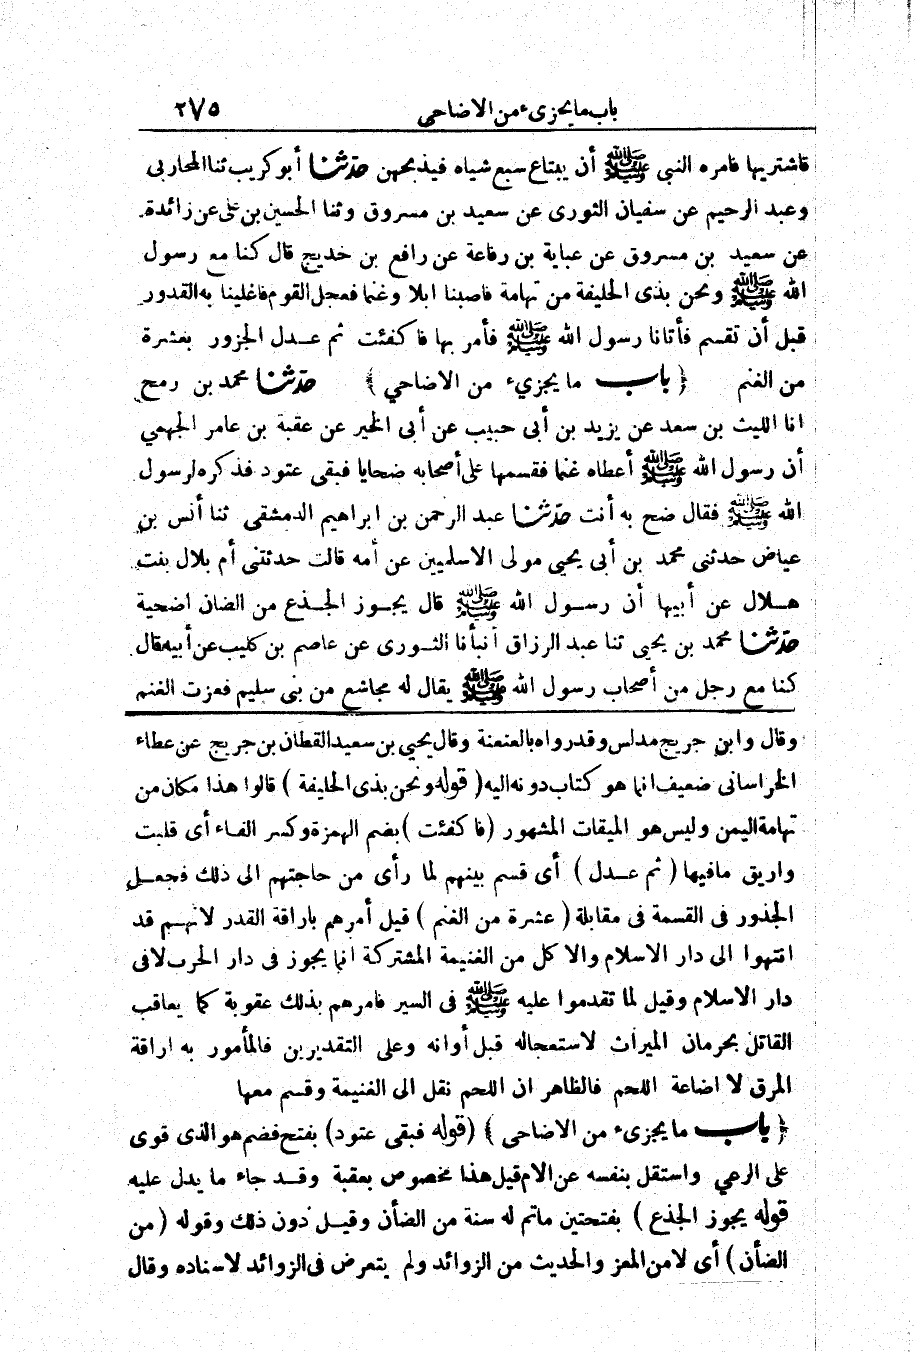 باب ما يجزىء من الاضاحى ٢٧٥
فاشتريها فامره النبى ﷺ أن يبتاع سبع شياه فيذبحهن حدثنا أبو كريب ثنا المحاربى
وعبد الرحيم عن سفيان الثورى عن سعيد بن مسروق وثنا الحسين بن على عن زائدة
عن سعيد بن مسروق عن عباية بن رفاعة عن رافع بن خديج قال كنا مع رسول
الله ﷺ ونحن بذى الحليفة من تهامة فاصبنا ابلا وغنما فعجل القوم فاغلينا به القدور
قبل أن تقسم فأتانا رسول الله ﷺ فأمر بها فاكفئت ثم عدل الجزور بعشرة
من الغنم ﴿ باب ما يجزيء من الاضاحي ﴾ حدثنا محمد بن رمح
انا الليث بن سعد عن يزيد بن أبى حبيب عن أبى الخير عن عقبة بن عامر الجهمي
أن رسول الله ﷺ أعطاه غنما فقسمها على أصحابه ضحايا فبقى عتود فذكره لرسول
الله ﷺ فقال ضح به أنت حدثنا عبد الرحمن بن ابراهيم الدمشقى ثنا أنس بن
عياض حدثنى محمد بن أبى يحيى مولى الاسلميين عن أمه قالت حدثتنى أم بلال بنت
هلال عن أبيها أن رسول الله ﷺ قال يجوز الجذع من الضان اضحية
حدثنا محمد بن يحيى ثنا عبد الرزاق أنبأنا الثورى عن عاصم بن كليب عن أبيه قال
كنا مع رجل من أصحاب رسول الله ﷺ يقال له مجاشع من بنى سليم فعزت الغنم
وقال وابن جريج مدلس وقد رواه بالعنعنة وقال يحيى بن سعيد القطان بن جريج عن عطاء
الخراسانى ضعيف انما هو كتاب دونه اليه ( قوله ونحن بذى الحليفة ) قالوا هذا مكان من
تهامة اليمن وليس هو الميقات المشهور ( فاكفئت ) بضم الهمزة وكسر الفاء أى قلبت
واريق مافيها ( ثم عدل ) أى قسم بينهم لما رأى من حاجتهم الى ذلك فجعل
الجذور فى القسمة فى مقابلة ( عشرة من الغنم ) قيل أمرهم باراقة القدر لانهم قد
انتهوا الى دار الاسلام والاكل من الغنيمة المشتركة انما يجوز فى دار الحرب لافى
دار الاسلام وقيل لما تقدموا عليه ﷺ فى السير فامرهم بذلك عقوبة كما يعاقب
القاتل بحرمان الميراث لاستعجاله قبل أوانه وعلى التقديرين فالمأمور به اراقة
المرق لا اضاعة اللحم فالظاهر ان اللحم نقل الى الغنيمة وقسم معها
﴿ باب مايجزىء من الاضاحى ﴾ ( قوله فبقى عتود ) بفتح فضم هو الذى قوى
على الرعي واستقل بنفسه عن الام قيل هذا مخصوص بعقبة وقد جاء ما يدل عليه
قوله يجوز الجذع ) بفتحتين ماتم له سنة من الضأن وقيل دون ذلك وقوله ( من
الضأن ) أى لامن المعز والحديث من الزوائد ولم يتعرض فى الزوائد لاسناده وقال